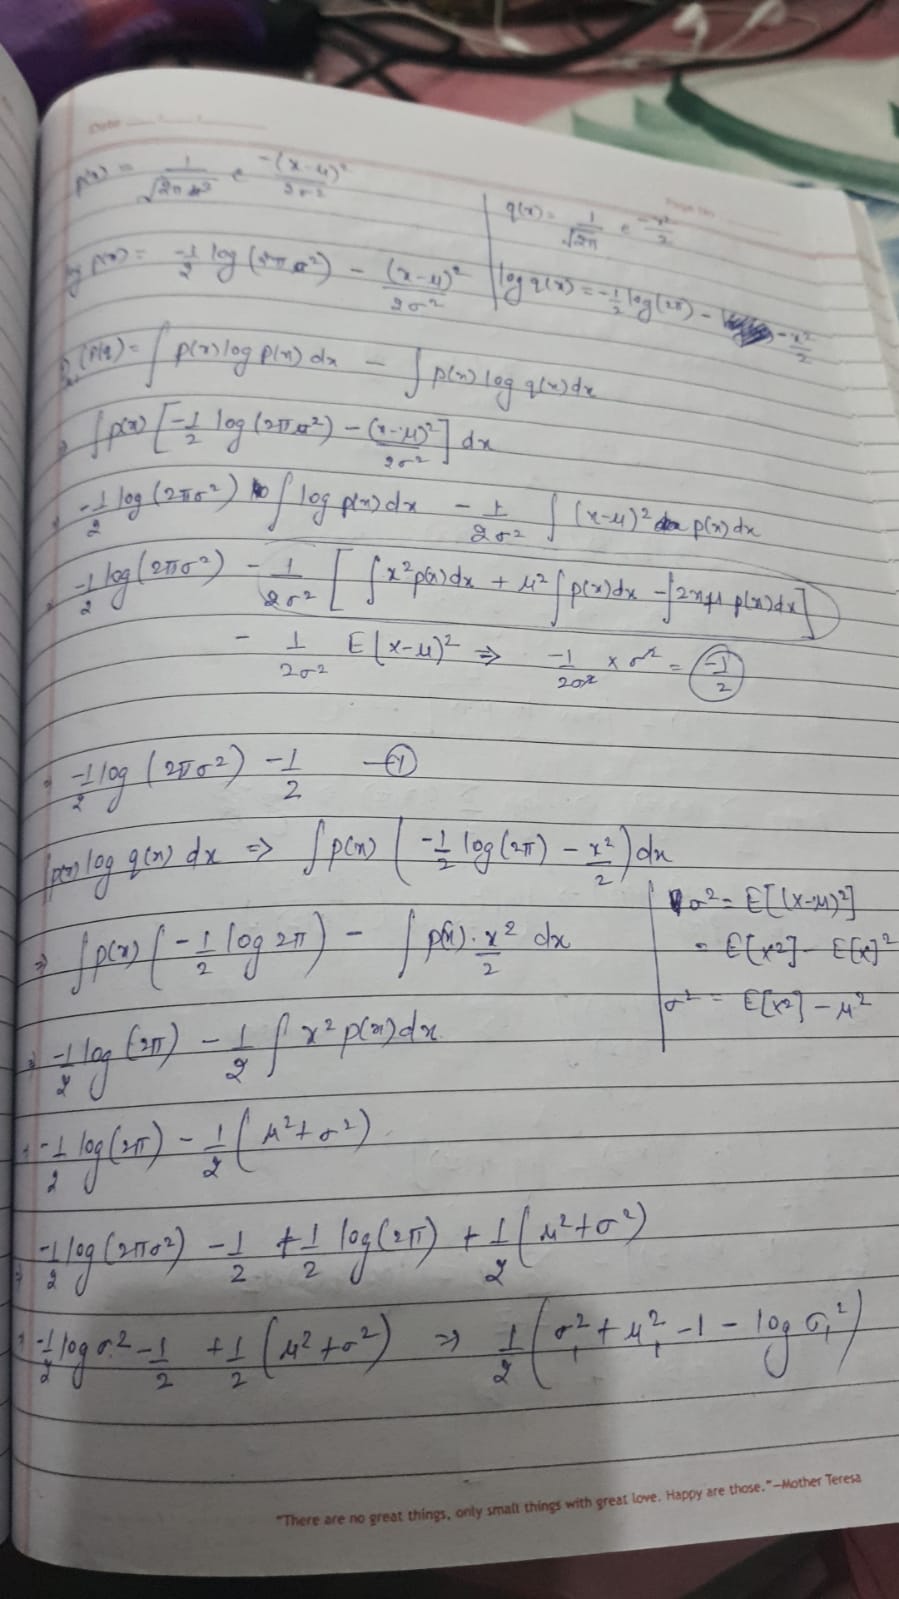 Date
p(x) = 1/√(2πσ²) e^(-(x-μ)²/2σ²)
q(x) = 1/√(2π) e^(-x²/2)
p(x) = -1/2 log(2πσ²) - (x-μ)²/2σ²
log q(x) = -1/2 log(2π) - x²/2
(P||q) = ∫ p(x) log p(x) dx - ∫ p(x) log q(x) dx
⇒ ∫ p(x) [-1/2 log(2πσ²) - (x-μ)²/2σ²] dx
-1/2 log(2πσ²) ∫ log p(x) dx - 1/2σ² ∫ (x-μ)² p(x) dx
-1/2 log(2πσ²) - 1/2σ² [∫ x² p(x) dx + μ² ∫ p(x) dx - ∫ 2xμ p(x) dx]
- 1/2σ² E(x-μ)² ⇒ -1/2σ² × σ² = -1/2
⇒ -1/2 log(2πσ²) - 1/2 - ①
∫ p(x) log q(x) dx ⇒ ∫ p(x) (-1/2 log(2π) - x²/2) dx
σ² = E[(x-μ)²]
⇒ ∫ p(x) (-1/2 log 2π) - ∫ p(x) · x²/2 dx
= E[x²] - E[x]²
σ² = E[x²] - μ²
⇒ -1/2 log(2π) - 1/2 ∫ x² p(x) dx
⇒ -1/2 log(2π) - 1/2 (μ² + σ²)
⇒ -1/2 log(2πσ²) - 1/2 + 1/2 log(2π) + 1/2 (μ² + σ²)
⇒ -1/2 log σ² - 1/2 + 1/2 (μ² + σ²) ⇒ 1/2 (σ₁² + μ₁² - 1 - log σ₁²)
"There are no great things, only small things with great love. Happy are those."-Mother Teresa